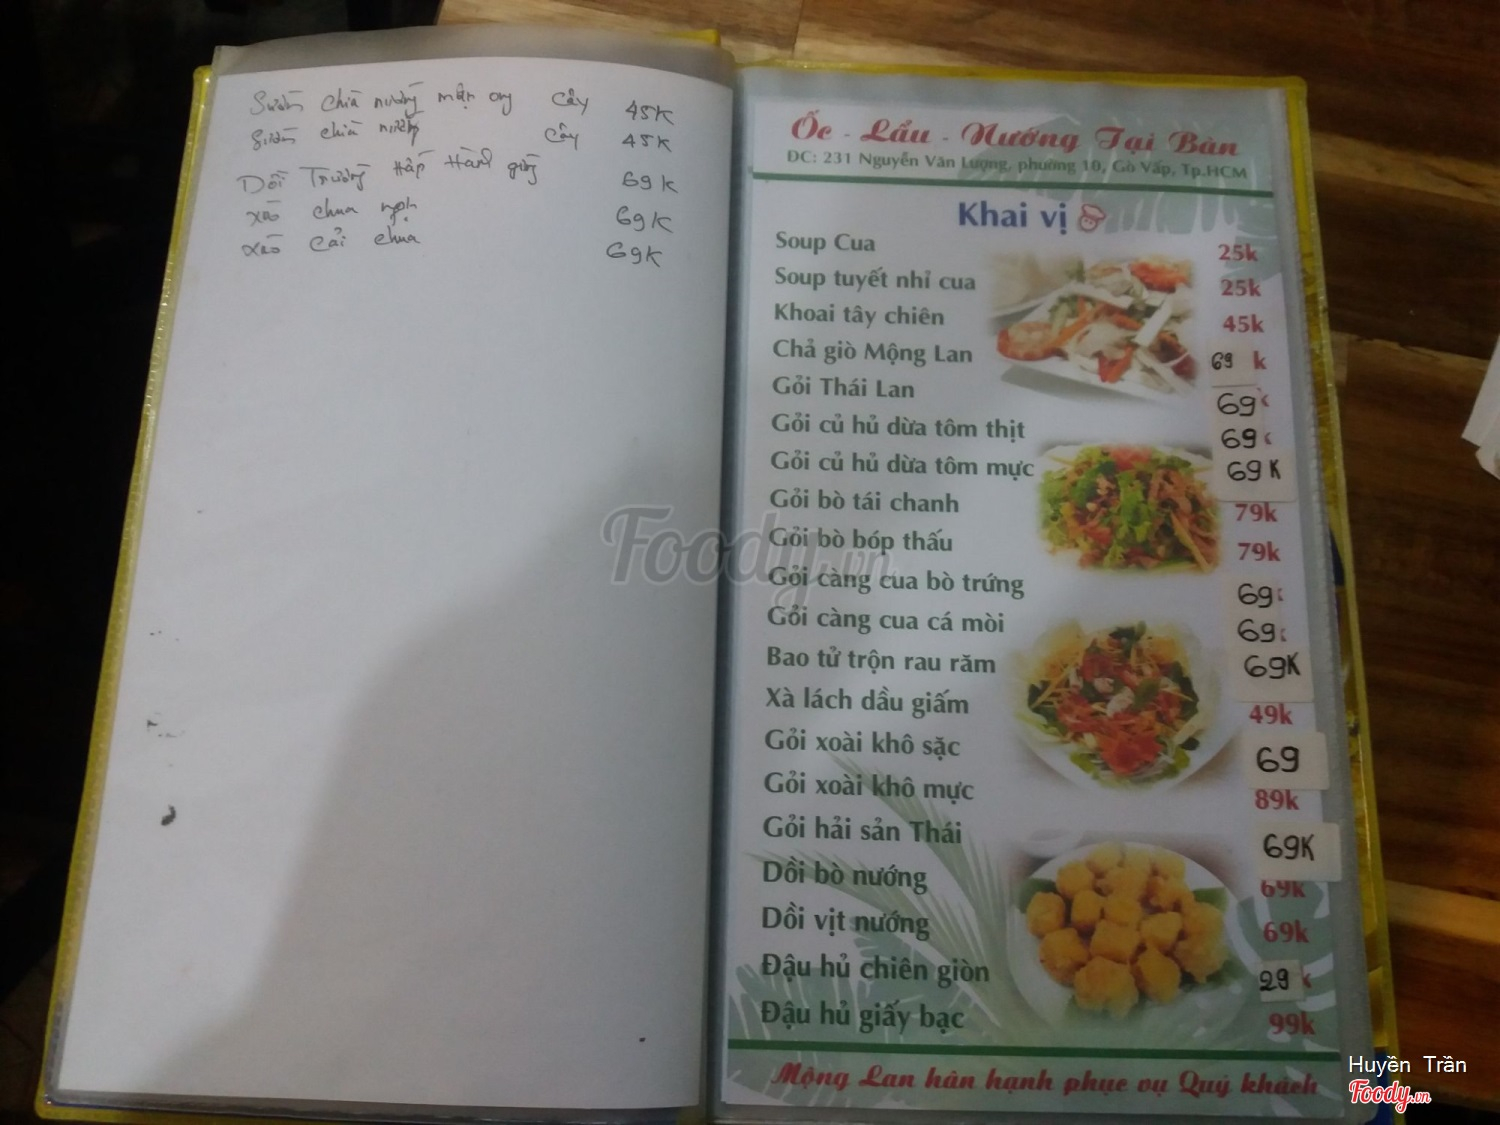 Sườn chìa nướng mật ong cây 45K
Sườn chìa nướng cây 45K
Dồi Trường Hấp Hành gừng 69K
xào chua ngọt 69K
xào cải chua 69K
Ốc - Lẩu - Nướng Tại Bàn
ĐC: 231 Nguyễn Văn Lượng, phường 10, Gò Vấp, Tp.HCM
Khai vị
Soup Cua 25k
Soup tuyết nhỉ cua 25k
Khoai tây chiên 45k
Chả giò Mộng Lan 69 k
Gỏi Thái Lan 69
Gỏi củ hủ dừa tôm thịt 69
Gỏi củ hủ dừa tôm mực 69K
Gỏi bò tái chanh 79k
Gỏi bò bóp thấu 79k
Gỏi càng cua bò trứng 69
Gỏi càng cua cá mòi 69
Bao tử trộn rau răm 69K
Xà lách dầu giấm 49k
Gỏi xoài khô sặc 69
Gỏi xoài khô mực 89k
Gỏi hải sản Thái 69K
Dồi bò nướng 69k
Dồi vịt nướng 69k
Đậu hủ chiên giòn 29
Đậu hủ giấy bạc 99k
Mộng Lan hân hạnh phục vụ Quý khách
Foody.vn
Huyền Trần
Foody.vn